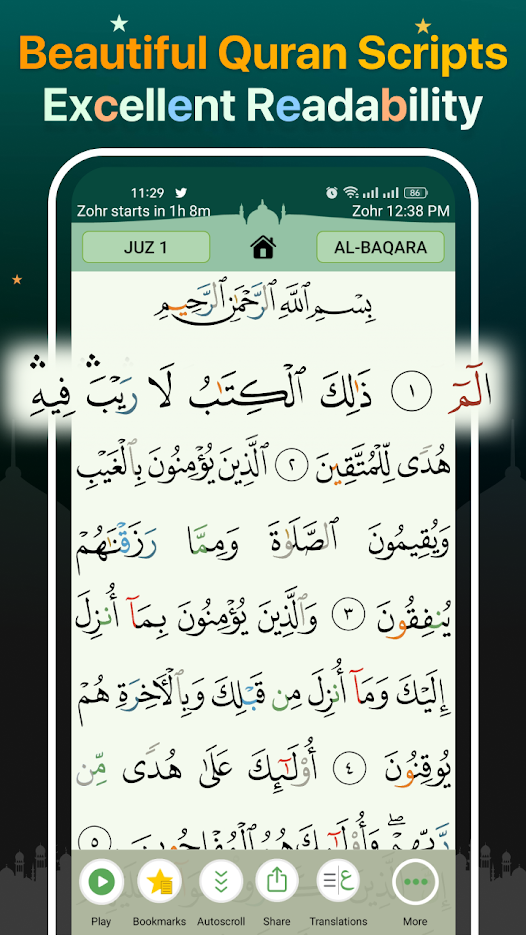 Beautiful Quran Scripts
Excellent Readability
11:29
86
Zohr starts in 1h 8m
Zohr 12:38 PM
JUZ 1
AL-BAQARA
بِسْمِ ٱللَّهِ ٱلرَّحْمَٰنِ ٱلرَّحِيمِ
الٓمٓ ١ ذَٰلِكَ ٱلْكِتَٰبُ لَا رَيْبَ ۛ فِيهِ ۛ
هُدًى لِّلْمُتَّقِينَ ٢ ٱلَّذِينَ يُؤْمِنُونَ بِٱلْغَيْبِ
وَيُقِيمُونَ ٱلصَّلَوٰةَ وَمِمَّا رَزَقْنَٰهُمْ
يُنفِقُونَ ٣ وَٱلَّذِينَ يُؤْمِنُونَ بِمَآ أُنزِلَ
إِلَيْكَ وَمَآ أُنزِلَ مِن قَبْلِكَ وَبِٱلْأَخِرَةِ هُمْ
يُوقِنُونَ ٤ أُو۟لَٰٓئِكَ عَلَىٰ هُدًى مِّن
رَّبِّهِمْ ۖ وَأُو۟لَٰٓئِكَ هُمُ ٱلْمُفْلِحُونَ ٥
Play
Bookmarks
Autoscroll
Share
Translations
More